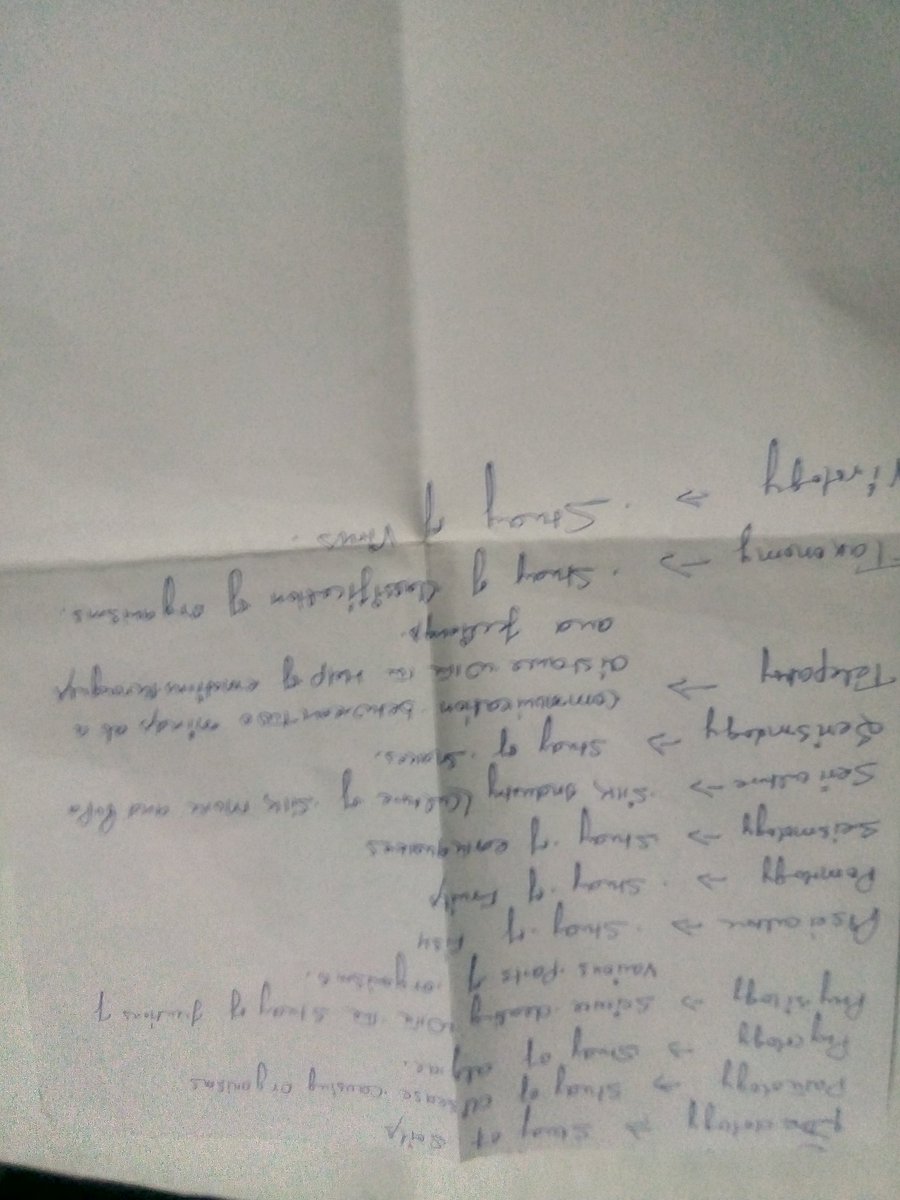 Pedology → Study of Soils
Pathology → Study of disease causing organisms
Phycology → Study of algae.
Physiology → Science dealing with the study of functions of
various parts of organisms.
Pisciculture → Study of Fish
Pomology → Study of Fruits
Seismology → Study of earthquakes
Sericulture → Silk industry (culture of silk moth and
→ Study of Snakes.
Telepathy → Communication between two minds at a
distance with the help of
and feelings.
Taxonomy → Study of classification of organisms.
Virology → Study of Virus.